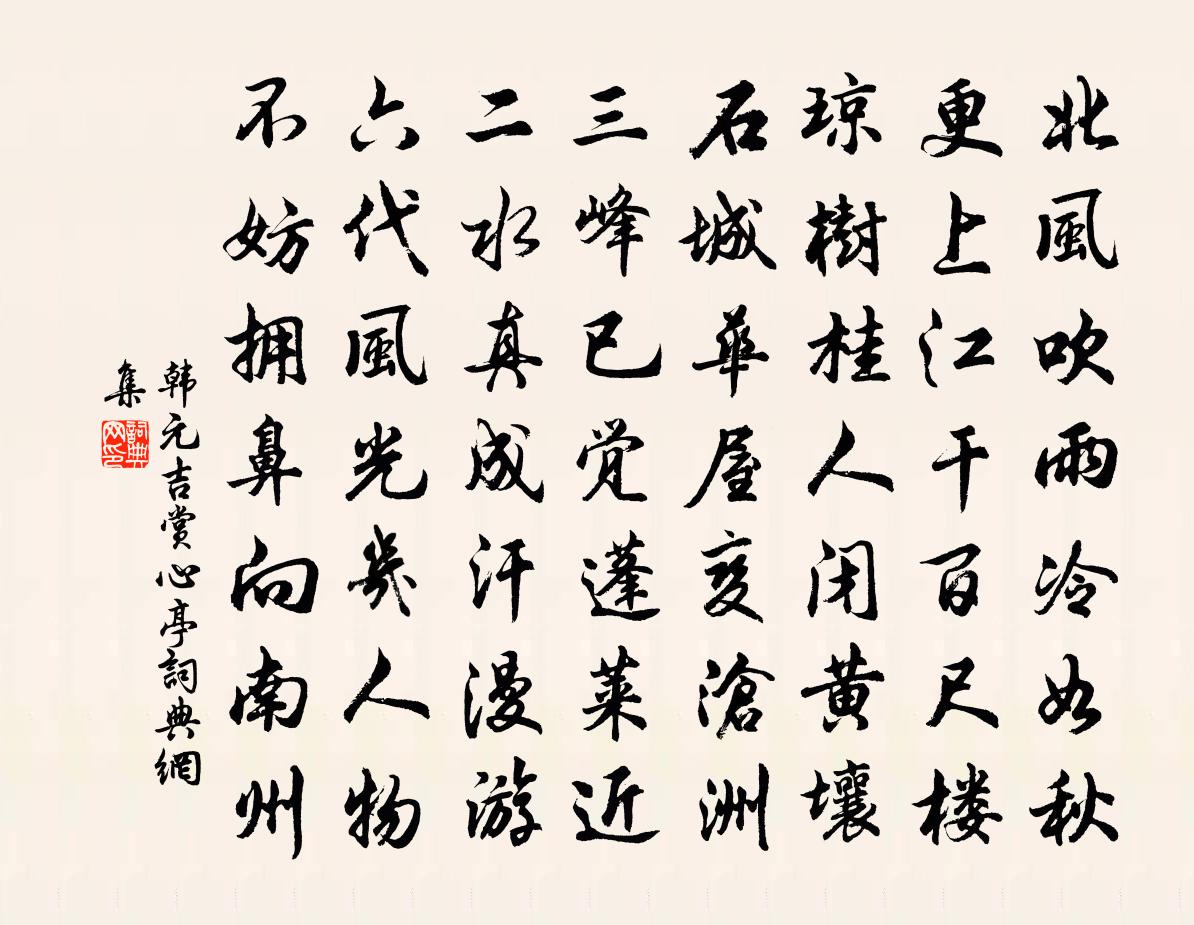 北風吹雨冷如秋
更上江干百尺楼
琼樹桂人闭黄壤
石城華屋变滄洲
三峰已觉蓬莱近
二水真成汗漫游
六代風光幾人物
不妨拥鼻向南州
韩元吉赏心亭詞典網
集
詞典网印